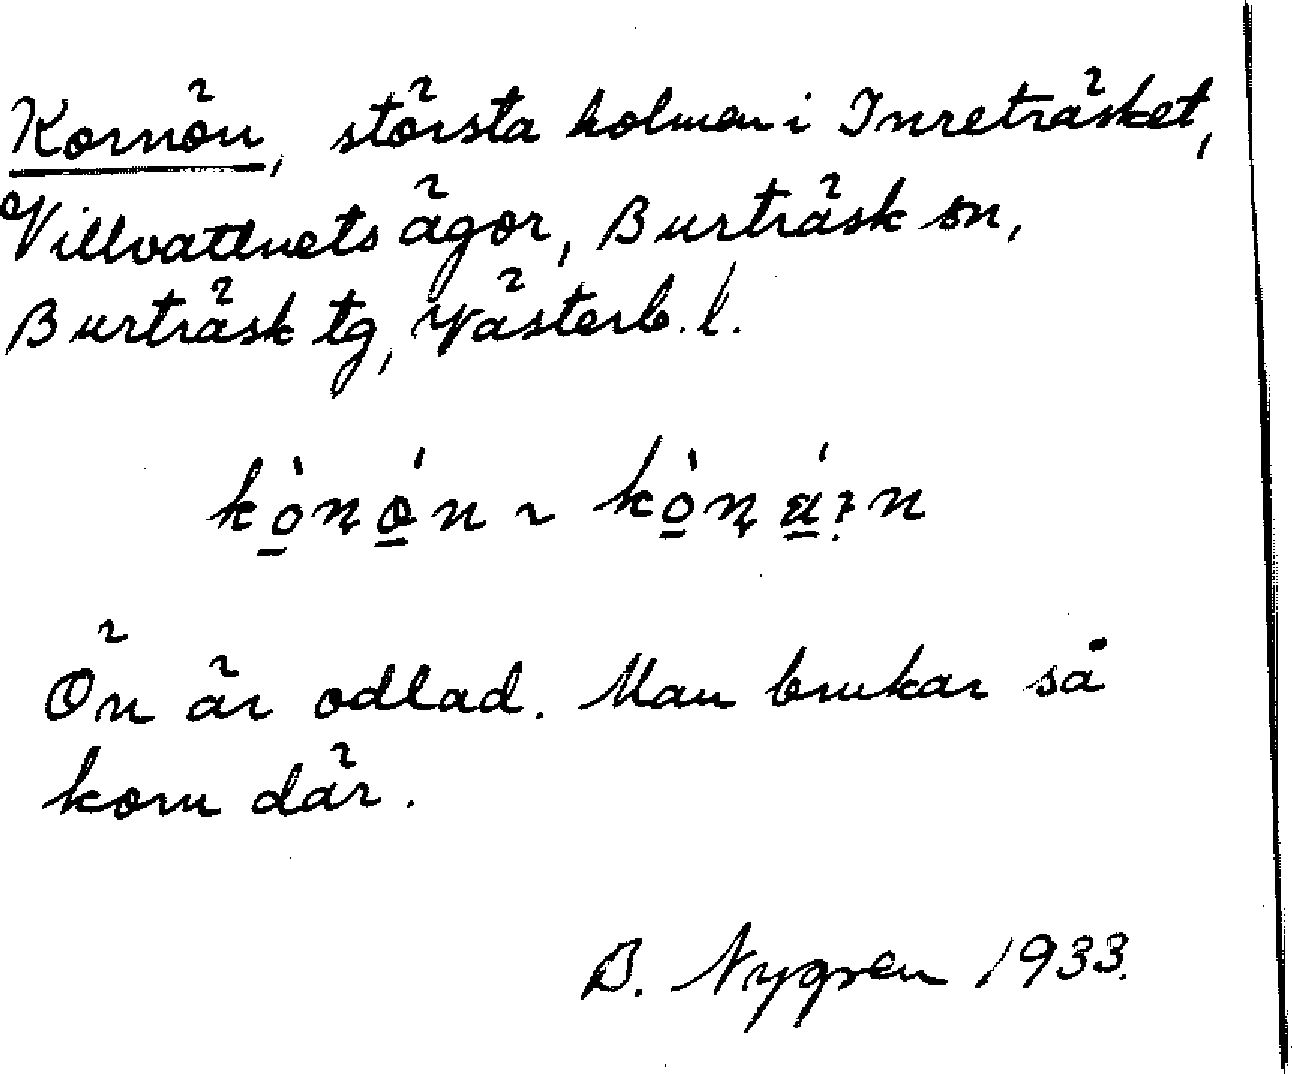 Kornön, största holmen i Inreträsket,
Villvattnets ägor, Burträsk sn,
Burträsk tg, Västerb. l.
Ön är odlad. Man brukar så
korn där.
B. Nygren 1933.